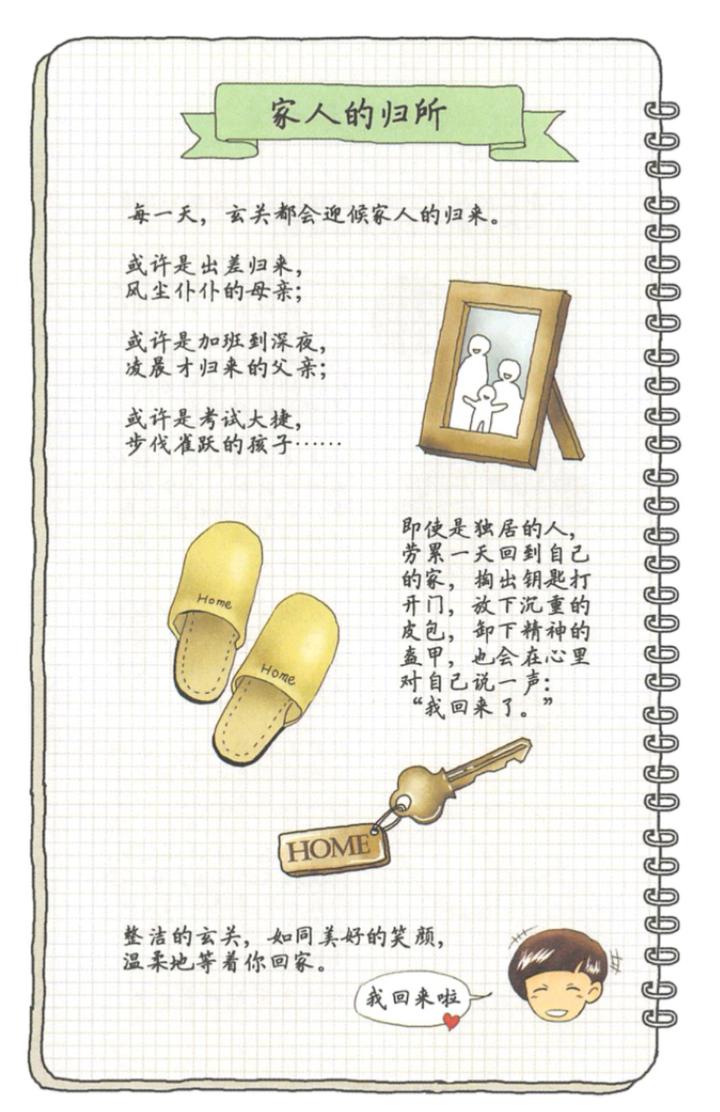 家人的归所
每一天，玄关都会迎候家人的归来。
或许是出差归来，
风尘仆仆的母亲；
或许是加班到深夜，
凌晨才归来的父亲；
或许是考试大捷，
步伐雀跃的孩子……
即使是独居的人，
劳累一天回到自己
的家，掏出钥匙打
开门，放下沉重的
皮包，卸下精神的
盔甲，也会在心里
对自己说一声：
“我回来了。”
Home
Home
HOME
整洁的玄关，如同美好的笑颜，
温柔地等着你回家。
我回来啦